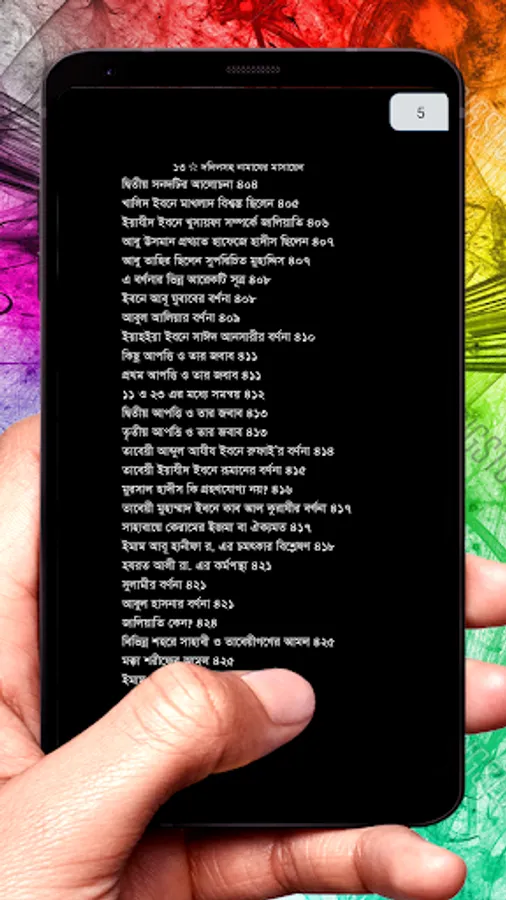 5
১৩ ☆ দলিলসহ নামাযের মাসায়েল
দ্বিতীয় সনদটির আলোচনা ৪০৪
খালিদ ইবনে মাখলাদ বিশ্বস্ত ছিলেন ৪০৫
ইয়াযীদ ইবনে খুসায়ফা সম্পর্কে জালিয়াতি ৪০৬
আবু উসমান প্রখ্যাত হাফেজে হাদীস ছিলেন ৪০৭
আবু তাহির ছিলেন সুপরিচিত মুহাদ্দিস ৪০৭
এ বর্ণনার ভিন্ন আরেকটি সূত্র ৪০৮
ইবনে আবূ যুবাবের বর্ণনা ৪০৮
আবুল আলিয়ার বর্ণনা ৪০৯
ইয়াহইয়া ইবনে সাঈদ আনসারীর বর্ণনা ৪১০
কিছু আপত্তি ও তার জবাব ৪১১
প্রথম আপত্তি ও তার জবাব ৪১১
১১ ও ২৩ এর মধ্যে সমন্বয় ৪১২
দ্বিতীয় আপত্তি ও তার জবাব ৪১৩
তৃতীয় আপত্তি ও তার জবাব ৪১৩
তাবেয়ী আব্দুল আযীয ইবনে রুফাই'র বর্ণনা ৪১৪
তাবেয়ী ইয়াযীদ ইবনে রূমানের বর্ণনা ৪১৫
মুরসাল হাদীস কি গ্রহণযোগ্য নয়? ৪১৬
তাবেয়ী মুহাম্মাদ ইবনে কাব আল কুরাযীর বর্ণনা ৪১৭
সাহাবায়ে কেরামের ইজমা বা ঐক্যমত ৪১৭
ইমাম আবূ হানীফা র. এর চমৎকার বিশ্লেষণ ৪১৮
হযরত আলী রা. এর কর্মপন্থা ৪২১
সুলামীর বর্ণনা ৪২১
আবুল হাসনার বর্ণনা ৪২১
জালিয়াতি কেন? ৪২৪
বিভিন্ন শহরে সাহাবী ও তাবেয়ীগণের আমল ৪২৫
মক্কা শরীফের আমল ৪২৫
ইমাম